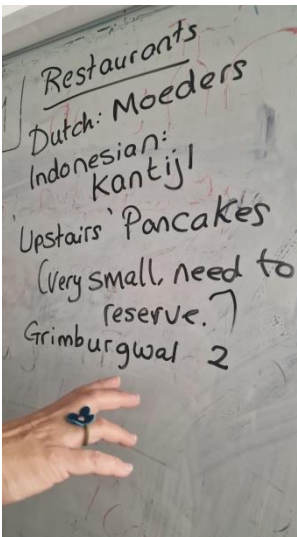 Restaurants
Dutch: Moeders
Indonesian:
Kantijl
'Upstairs' Pancakes
(Very small, need to
reserve.)
Grimburgwal 2